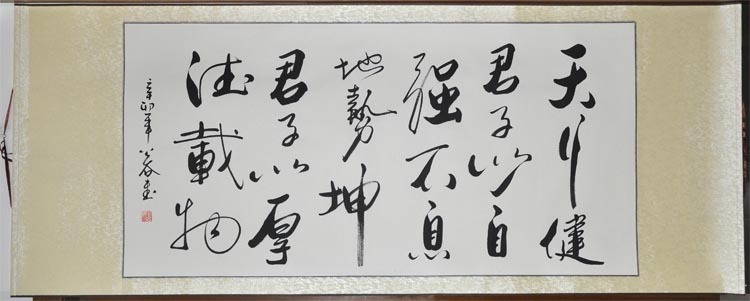 天行健
君子以自
强不息
地势坤
君子以厚
德载物
辛卯年